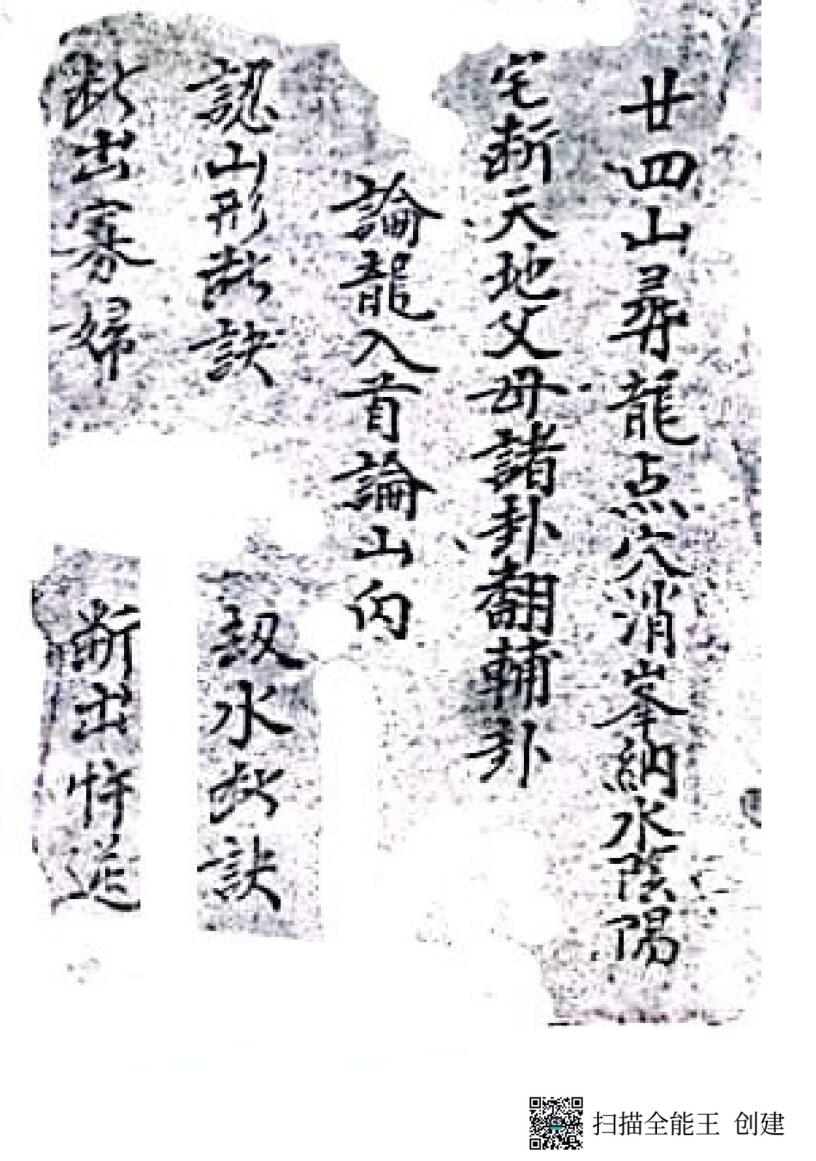 廿四山尋龍点穴消峯納水陰陽
宅斷天地父母諸卦翻輔卦
論龍入首論山內
認山形斷訣
認水斷訣
斷出寡婦
斷出忤逆
扫描全能王 创建